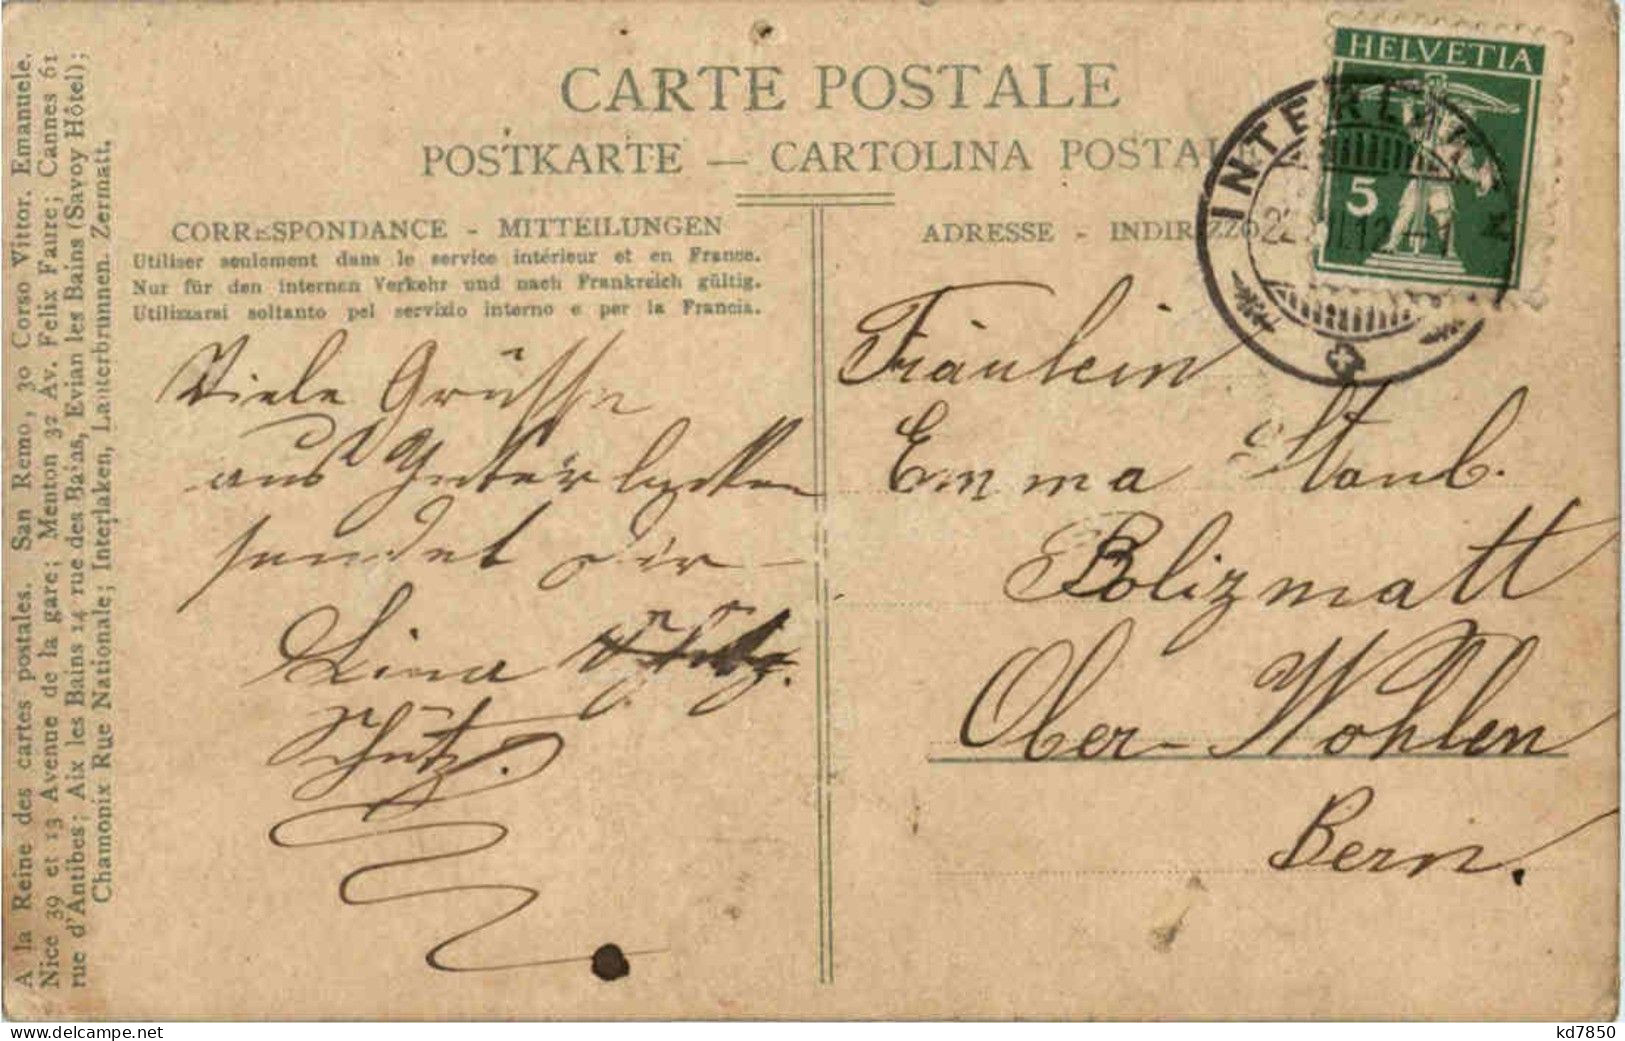 CARTE POSTALE
POSTKARTE — CARTOLINA POSTAL
CORRESPONDANCE - MITTEILUNGEN
Utiliser seulement dans le service intérieur et en France.
Nur für den internen Verkehr und nach Frankreich gültig.
Utilizzarsi soltanto pel servizio interno e per la Francia.
ADRESSE - INDIRIZZO
HELVETIA
5
INTERLAKEN
Viele Grüsse
aus Interlacken
sendet dir
Lina
Schütz.
Fräulein
Emma Staub.
Bolizmatt
Ober-Wohlen
Bern.
A la Reine des cartes postales. San Remo, 30 Corso Vittor. Emanuele.
Nice 39 et 13 Avenue de la gare; Menton 32 Av. Felix Faure; Cannes 61
rue d'Antibes; Aix les Bains 14 rue des Bains, Evian les Bains (Savoy Hôtel);
Chamonix Rue Nationale; Interlaken, Lauterbrunnen. Zermatt.
www.delcampe.net
kd7850